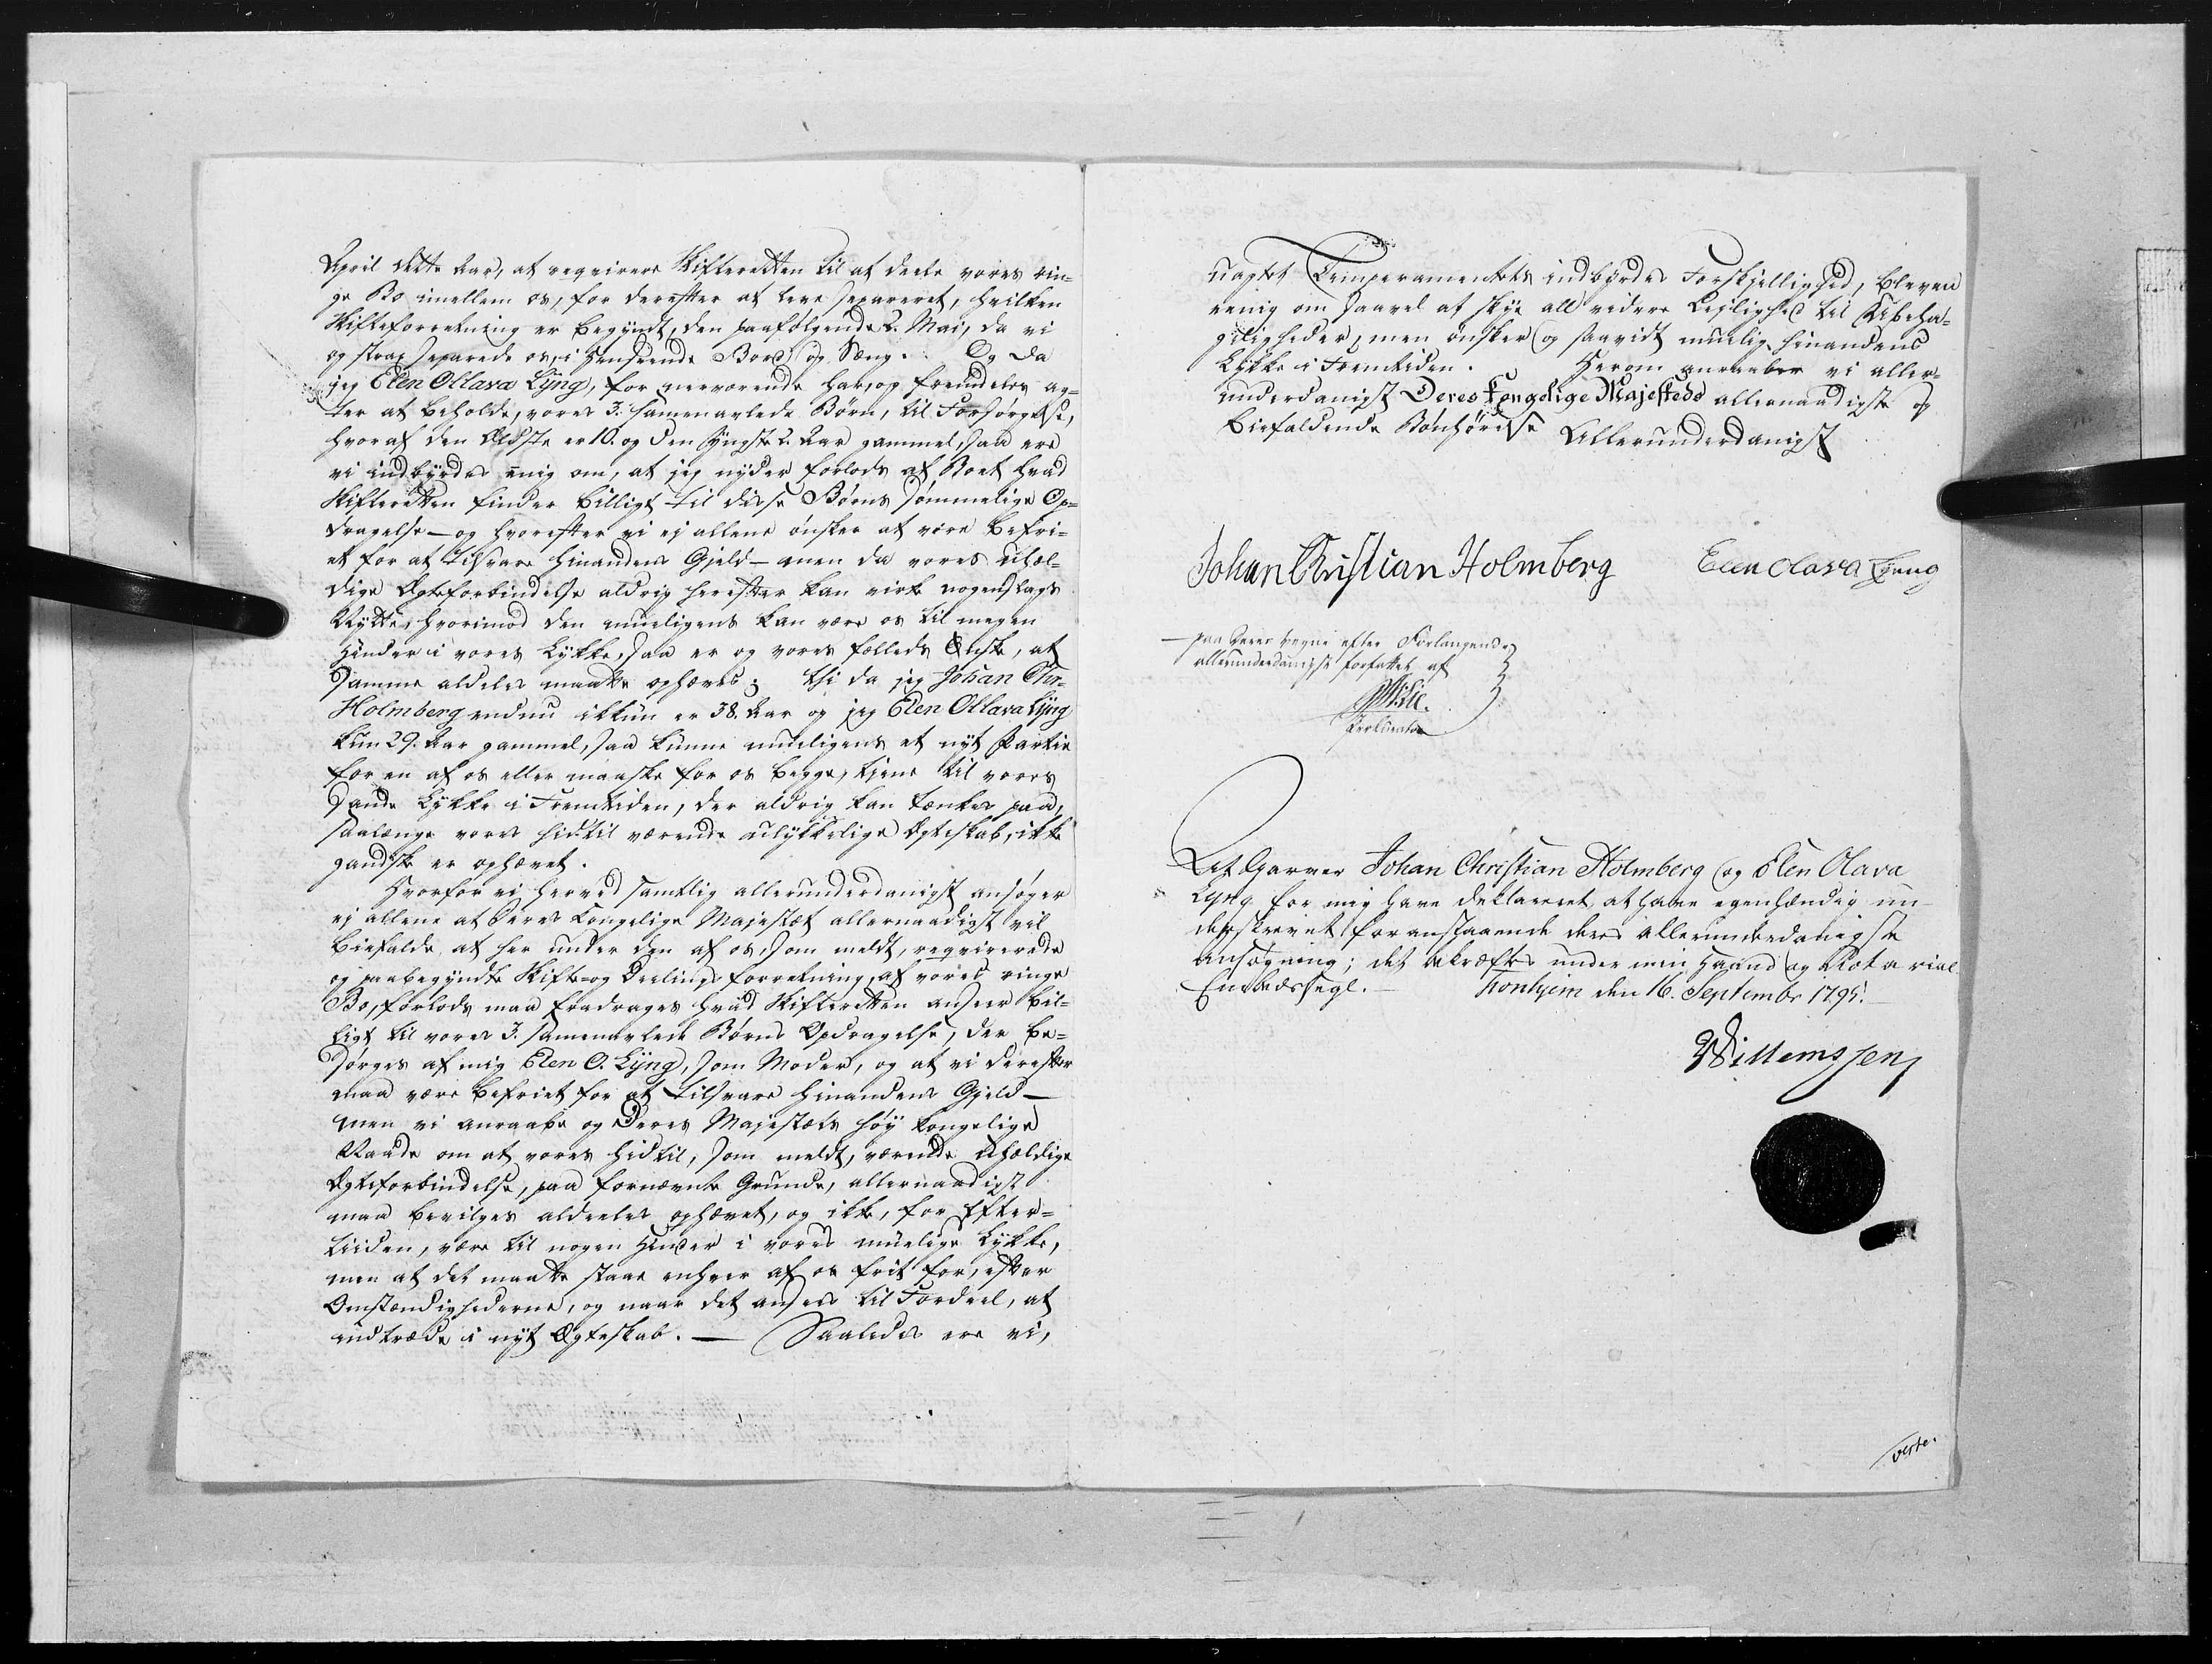 April dette Aar, at reqvirere Skifteretten til at deele vores rin-
ge Bo imellem os, for derefter at leve separeret, hvilken
Skifteforretning er begyndt, den paafølgende 2. Mai, da vi
og strax separede os, i Henseende Bord og Sæng. Og da
jeg Elen Ollava Lÿng, for nærværende har, og fremdeles ag-
ter at beholde, vores 3. sammenavlede Børn, til Forsørgelse,
hvoraf den Ældste er 10. og den yngste 2. Aar gammel, saa ere
vi indbyrdes enig om, at jeg nyder forlods af Boet hvad
Skifteretten finder billigt til disse Børns sømmelige Op-
dragelse — og hvorefter vi ej allene ønsker at være befri-
et for at tilsvare hinandens Gjeld — men da vores uhæl-
dige Ægteforbindelse aldrig herefter kan virke nogenslags
Nytte, hvorimod den mueligens kan være os til megen
Hinder i vores Lykke, saa er og vores fælleds Ønske, at
samme aldeles maatte ophæves; thi da jeg Johan Chr-
Holmberg endnu ikkun er 38. Aar og jeg Elen Ollava Lÿng
kun 29. Aar gammel, saa kunne mueligens et nyt Partie
for en af os eller maaske for os begge, tiene til vores
sande Lykke i Fremtiden, der aldrig kan tænkes paa,
saalænge vores hidtil værende ulykkelige Ægteskab, ikke
gandske er ophævet.
Hvorfor vi herved samtlig allerunderdanigst ansøger
ej allene at Deres Kongelige Majestæt allernaadigst vil
biefalde, at her under den af os, som meldt, reqvirerede
og paabegyndte Skifte- og Deelings forretning, af vores ringe
Bo, forlods maa fradrages hvad Skifteretten anseer bil-
ligt til vores 3. sammenavlede Børns Opdragelse, der be-
sørges af mig Elen O. Lÿng, som Moder, og at vi derefter
maa være befriet for at tilsvare hinandens Gjeld —
men vi anraabe og Deres Majestæts høy Kongelige
Naade om at vores hidtil, som meldt, værende uhældige
Ægteforbindelse, paa fornævnte Grunde, allernaadigst
maa bevilges aldeeles ophævet, og ikke, for Efter-
tiiden, være til nogen Hinder i vores muelige Lykke,
men at det maatte staae enhver af os frit for, efter
Omstændighederne, og naar det ansees til Fordeel, at
indtræde i nyt Ægteskab. — Saaledes ere vi,
uagtet Temperamentets indbyrdes Forskjellighed, bleven
eenig om saavel at skye all videre Leilighed til Ubeha-
geligheder, men ønsker og saavidt muelig hinandens
Lykke i Fremtiden. Herom anraaber vi aller-
underdanigst Deres Kongelige Majesteds allernaadigste og
biefaldende Bønhørelse Allerunderdanigst
Johan Christian Holmberg Elen Olava Lyng
— paa Deres vegne efter Forlangende
allerunderdanigst forfattet af
Prokurator
At Garver Johan Christian Holmberg og Elen Olava
Lyng for mig have deklareret, at have egenhændig un-
derskrevet foranstaaende deres allerunderdanigste
ansøgning; det bekræftes under min Haand og Notarial
Embedssegl. — Tronhjem den 16. Septembr 1795.
Willemssen
verte.